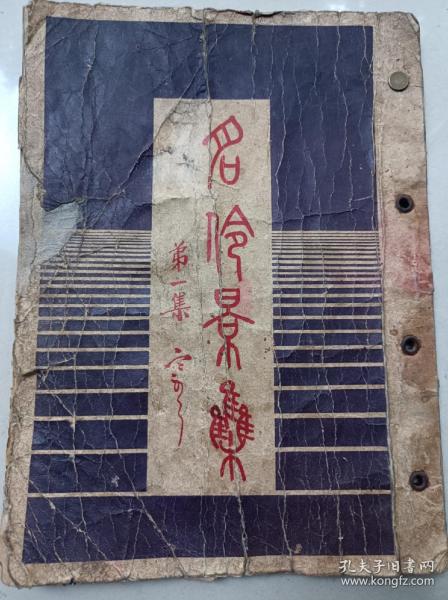 名伶景集
第一集
孔夫子旧书网
www.kongfz.com